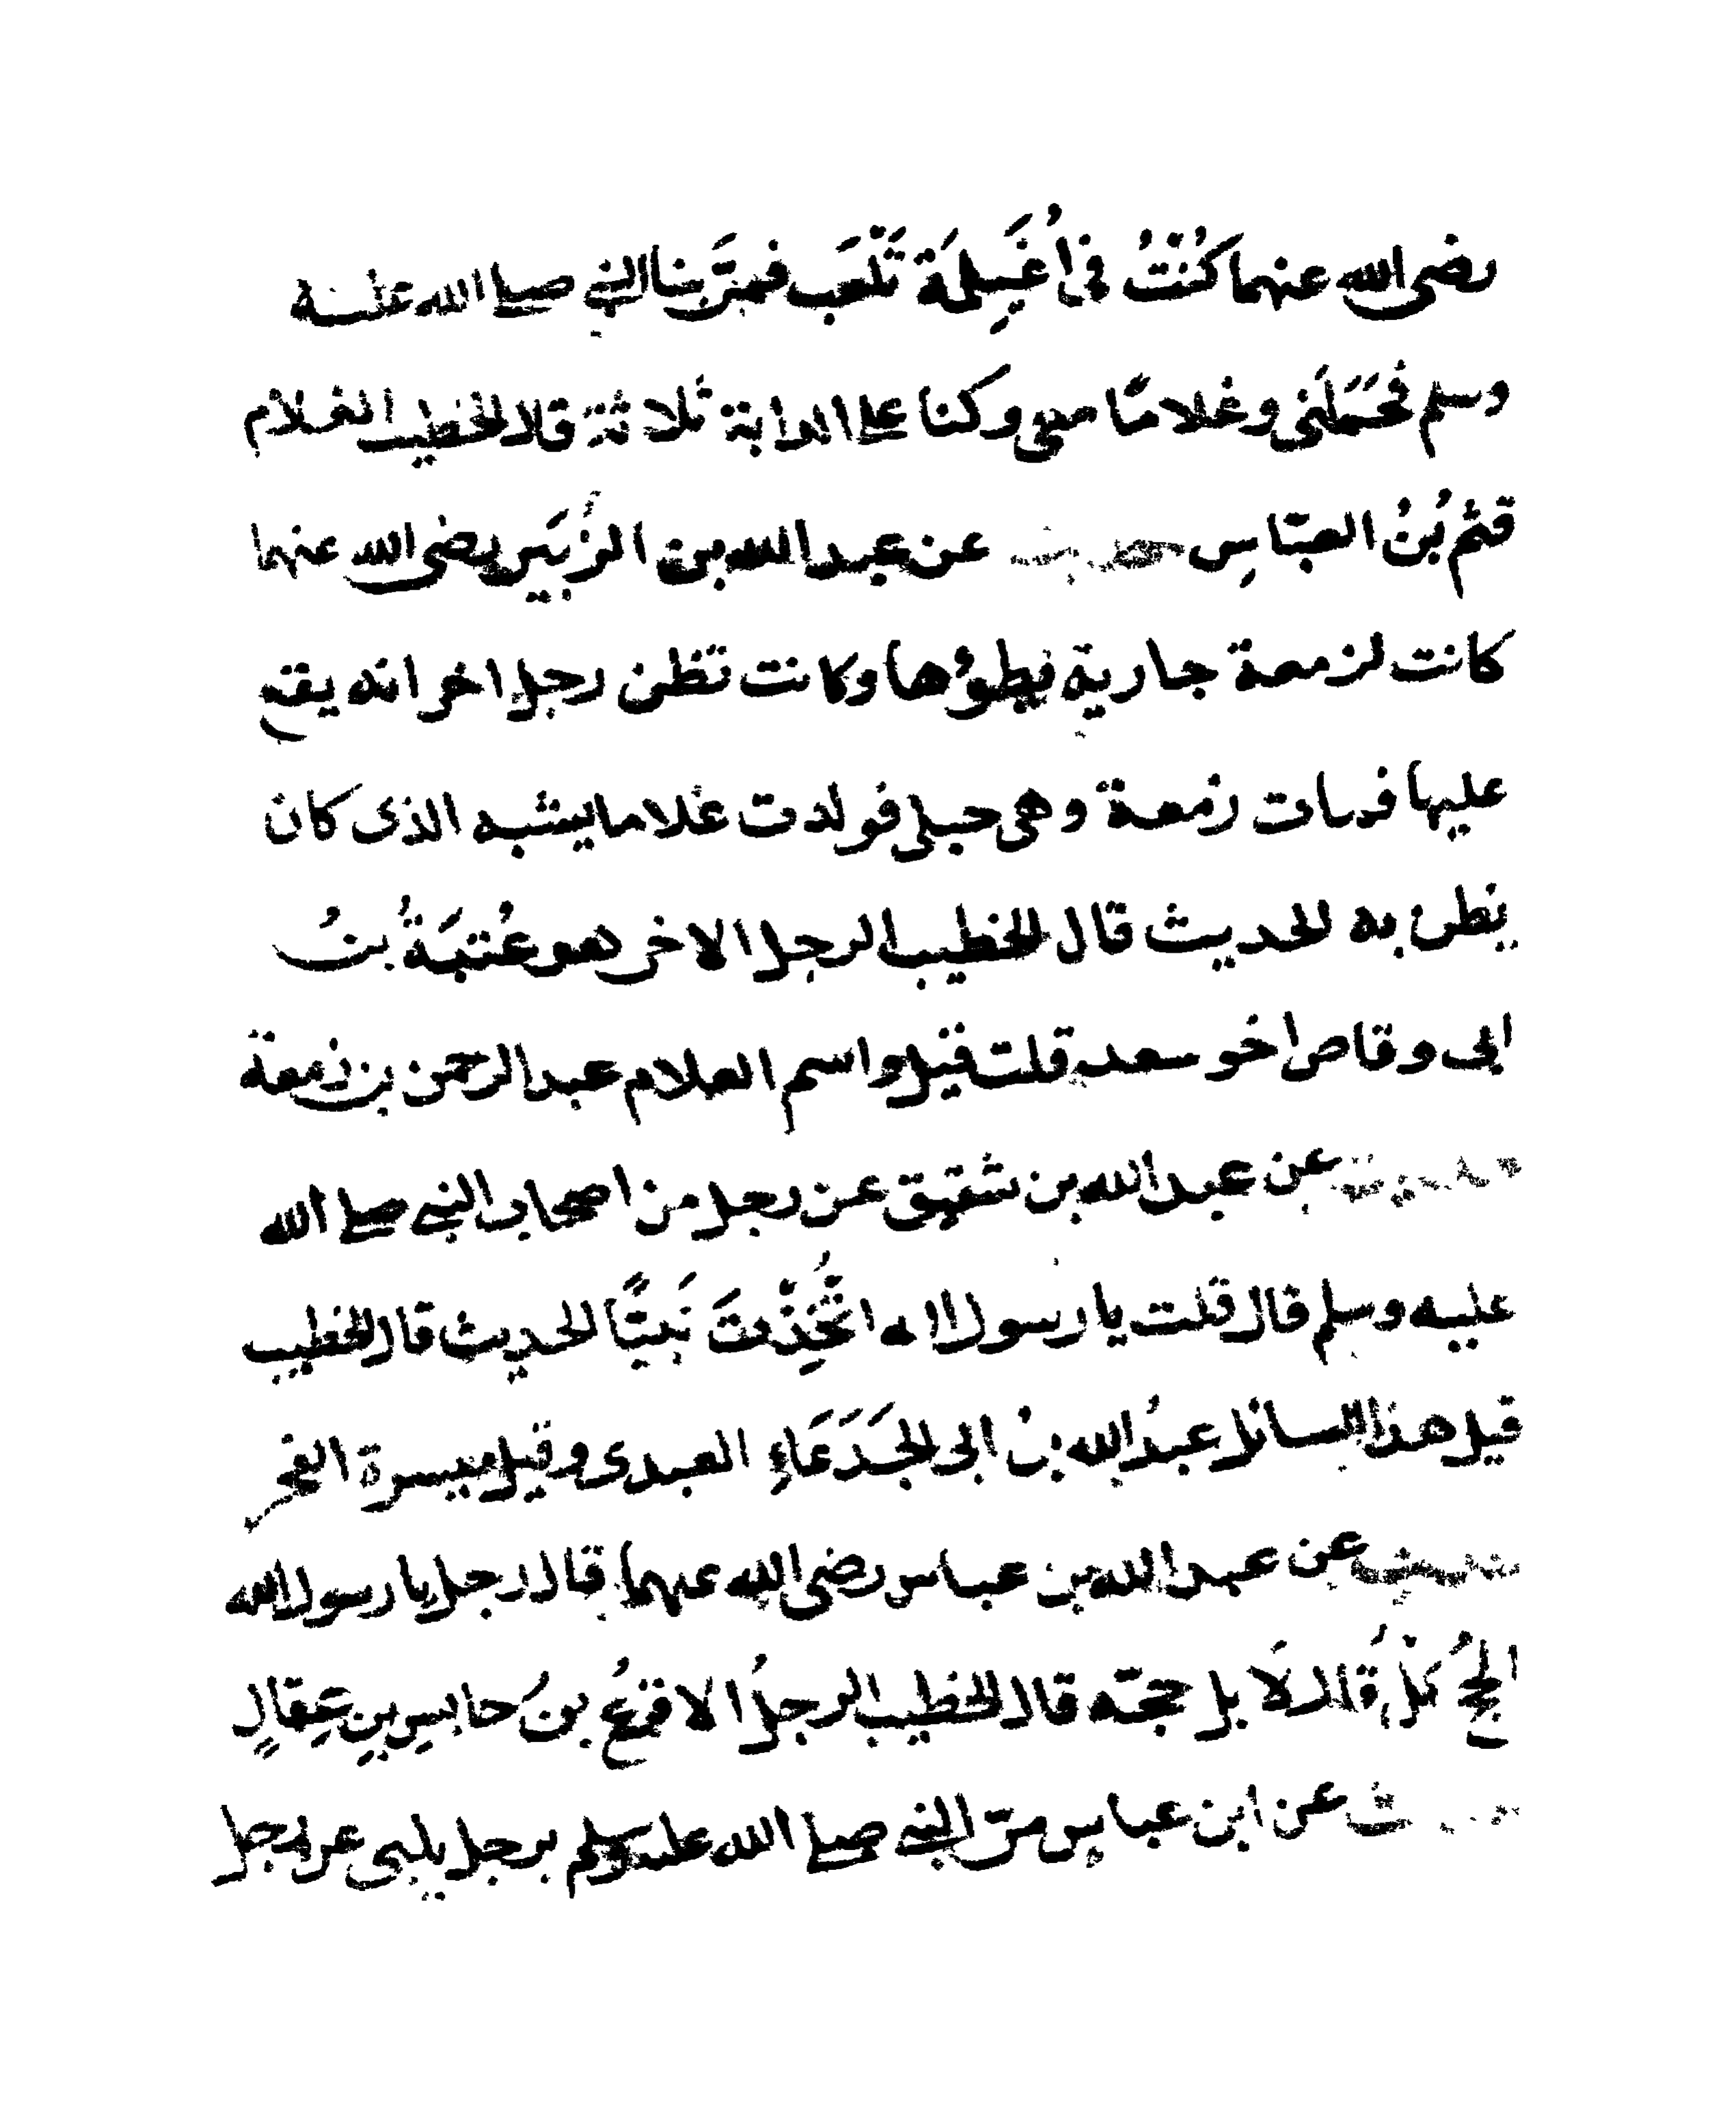 رضى الله عنهما كُنْتُ فى اُغَيِلمَة تَلْعَب فمَرَّ بنا النبى صلى الله عليه
وسلم فحَمَلَنى وغلامًا معى وكنا على الدابة ثلاثة قال الخطيب الغلام
قثم بُنُ العبّاسِ حديث عن عبد الله بن الزُبَير رضى الله عنهما
كانت لزمعة جارية يطؤها وكانت تظن رجل اخر انه يقع
عليها فمات زمعة وهى حبلى فولدت غلاما يشبه الذى كان
يظن به الحديث قال الخطيب الرجل الاخر هو عُتبَةُ بنُ
ابى وقاص اخو سعد قلت قيل واسم الغلام عبد الرحمن بن زمعة
حديث عن عبد الله بن شقيق عن رجل من اصحاب النبى صلى الله
عليه وسلم قال قلت يا رسول الله اتُّخِذْتَ نَبيًّا الحديث قال الخطيب
قيل هذا السائل عبدُ الله بنُ ابى الجَدَعَاءِ العبدى وقيل ميسرة الفجر
حديث عن عبد الله بن عباس رضى الله عنهما قال رجل يا رسول الله
الحجُ كلُ قال لَا بل حجّه قال الخطيب الرجلُ الاقرعُ بنُ حابسِ بنِ عِقالٍ
حديث عن ابن عباس مرّ النبى صلى الله عليه وسلم برجل يلبى عن رجل